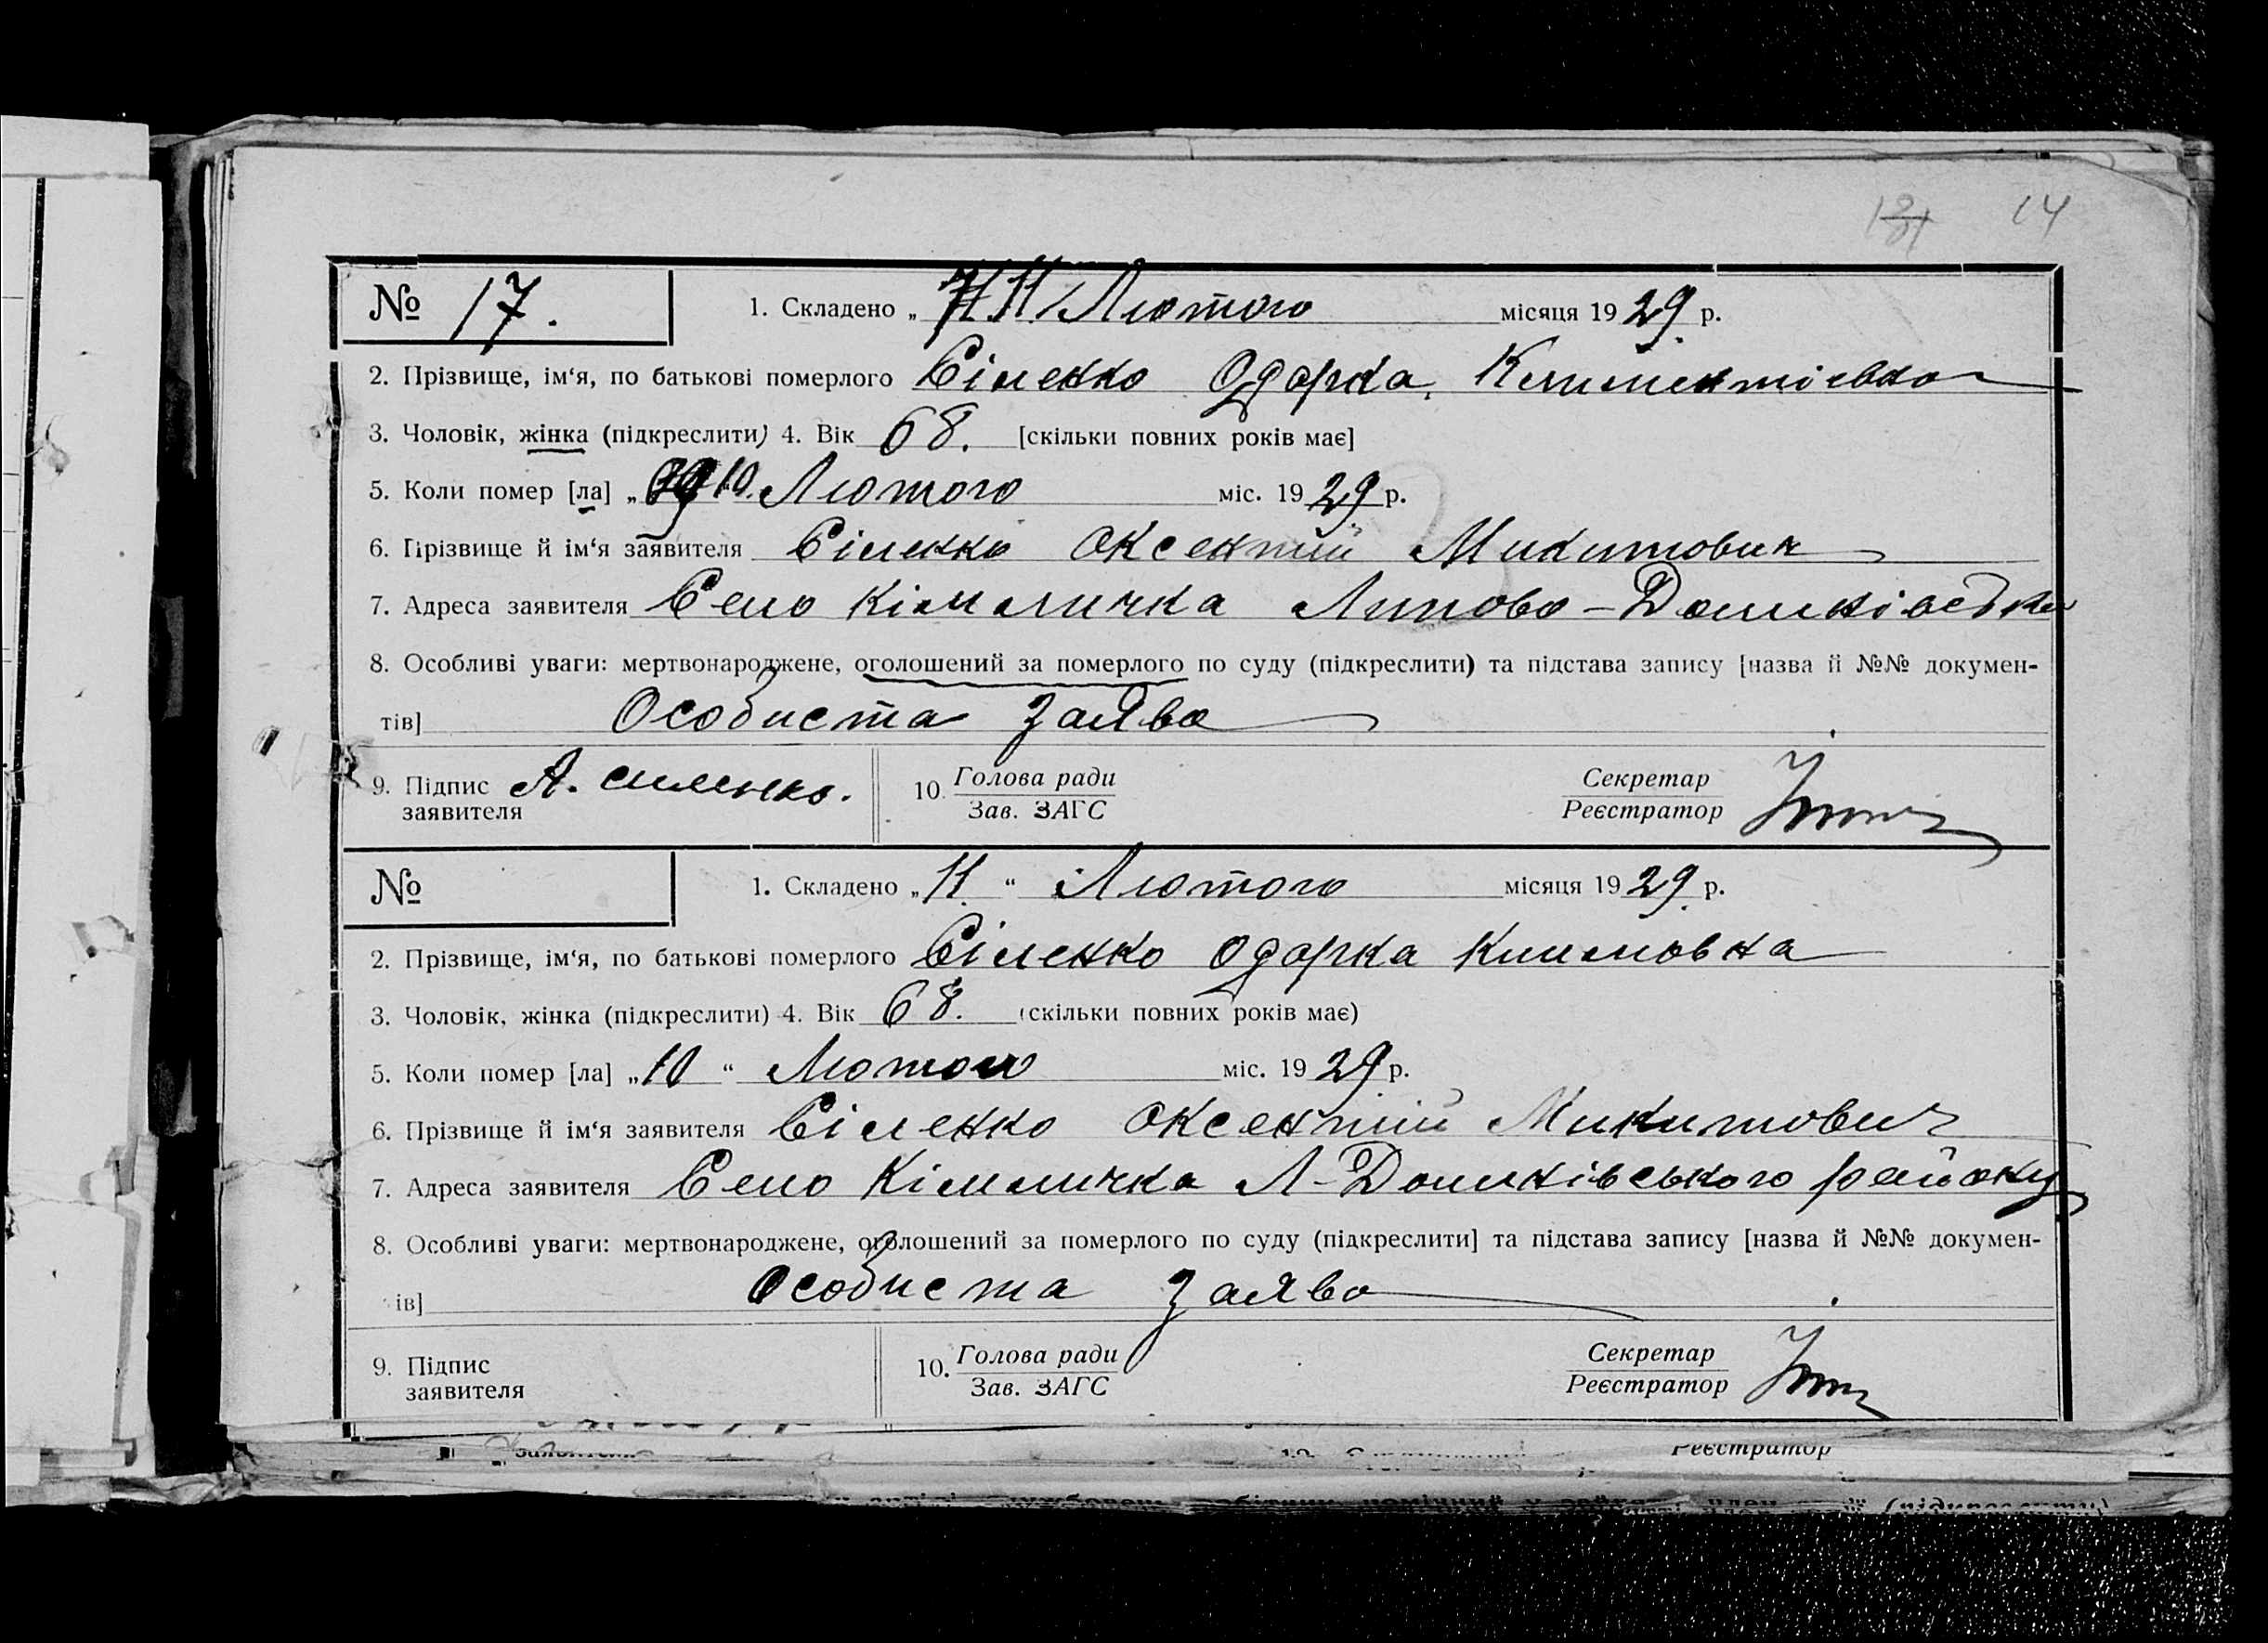 14
№ 17. 1. Складено „ 11 Лютого місяця 1929 р.
2. Прізвище, ім‘я, по батькові померлого Сіленко Одарка, Климентіевна
3. Чоловік, жінка (підкреслити) 4. Вік 68. [скільки повних років має]
5. Коли помер [ла] „ 10. Лютого міс. 1929 р.
6. Прізвище й ім‘я заявителя Сіленко Оксентий Микитович
7. Адреса заявителя Село Кімличка Липово-Долинівськ
8. Особливі уваги: мертвонароджене, оголошений за померлого по суду (підкреслити) та підстава запису [назва й №№ докумен-
тів] Особиста заява
9. Підпис заявителя А. силенко. 10. Голова ради Секретар
Зав. ЗАГС Реєстратор
№ 1. Складено „11“ Лютого місяця 1929 р.
2. Прізвище, ім‘я, по батькові померлого Сіленко Одарка Климовна
3. Чоловік, жінка (підкреслити) 4. Вік 68. (скільки повних років має)
5. Коли помер [ла] „10“ Лютого міс. 1929 р.
6. Прізвище й ім‘я заявителя Сіленко Оксентий Микитович
7. Адреса заявителя Село Кімличка Л-Долинівського району
8. Особливі уваги: мертвонароджене, оголошений за померлого по суду (підкреслити] та підстава запису [назва й №№ докумен-
ів] Особиста заява
9. Підпис заявителя 10. Голова ради Секретар
Зав. ЗАГС Реєстратор
Реєстратор